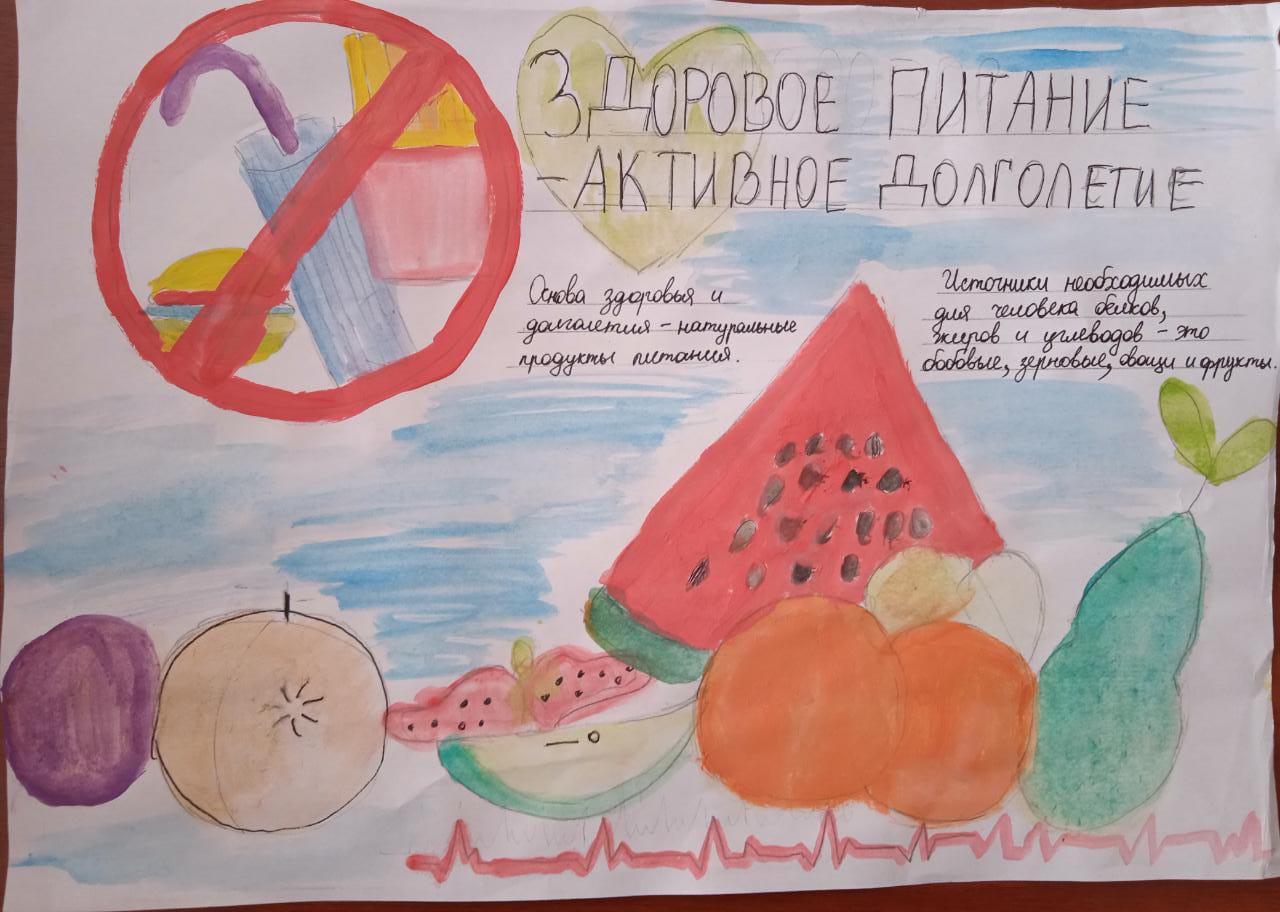 ЗДОРОВОЕ ПИТАНИЕ
-АКТИВНОЕ ДОЛГОЛЕТИЕ
Основа здоровья и
долголетия - натуральные
продукты питания.
Источники необходимых
для человека белков,
жиров и углеводов - это
бобовые, зерновые, овощи и фрукты.